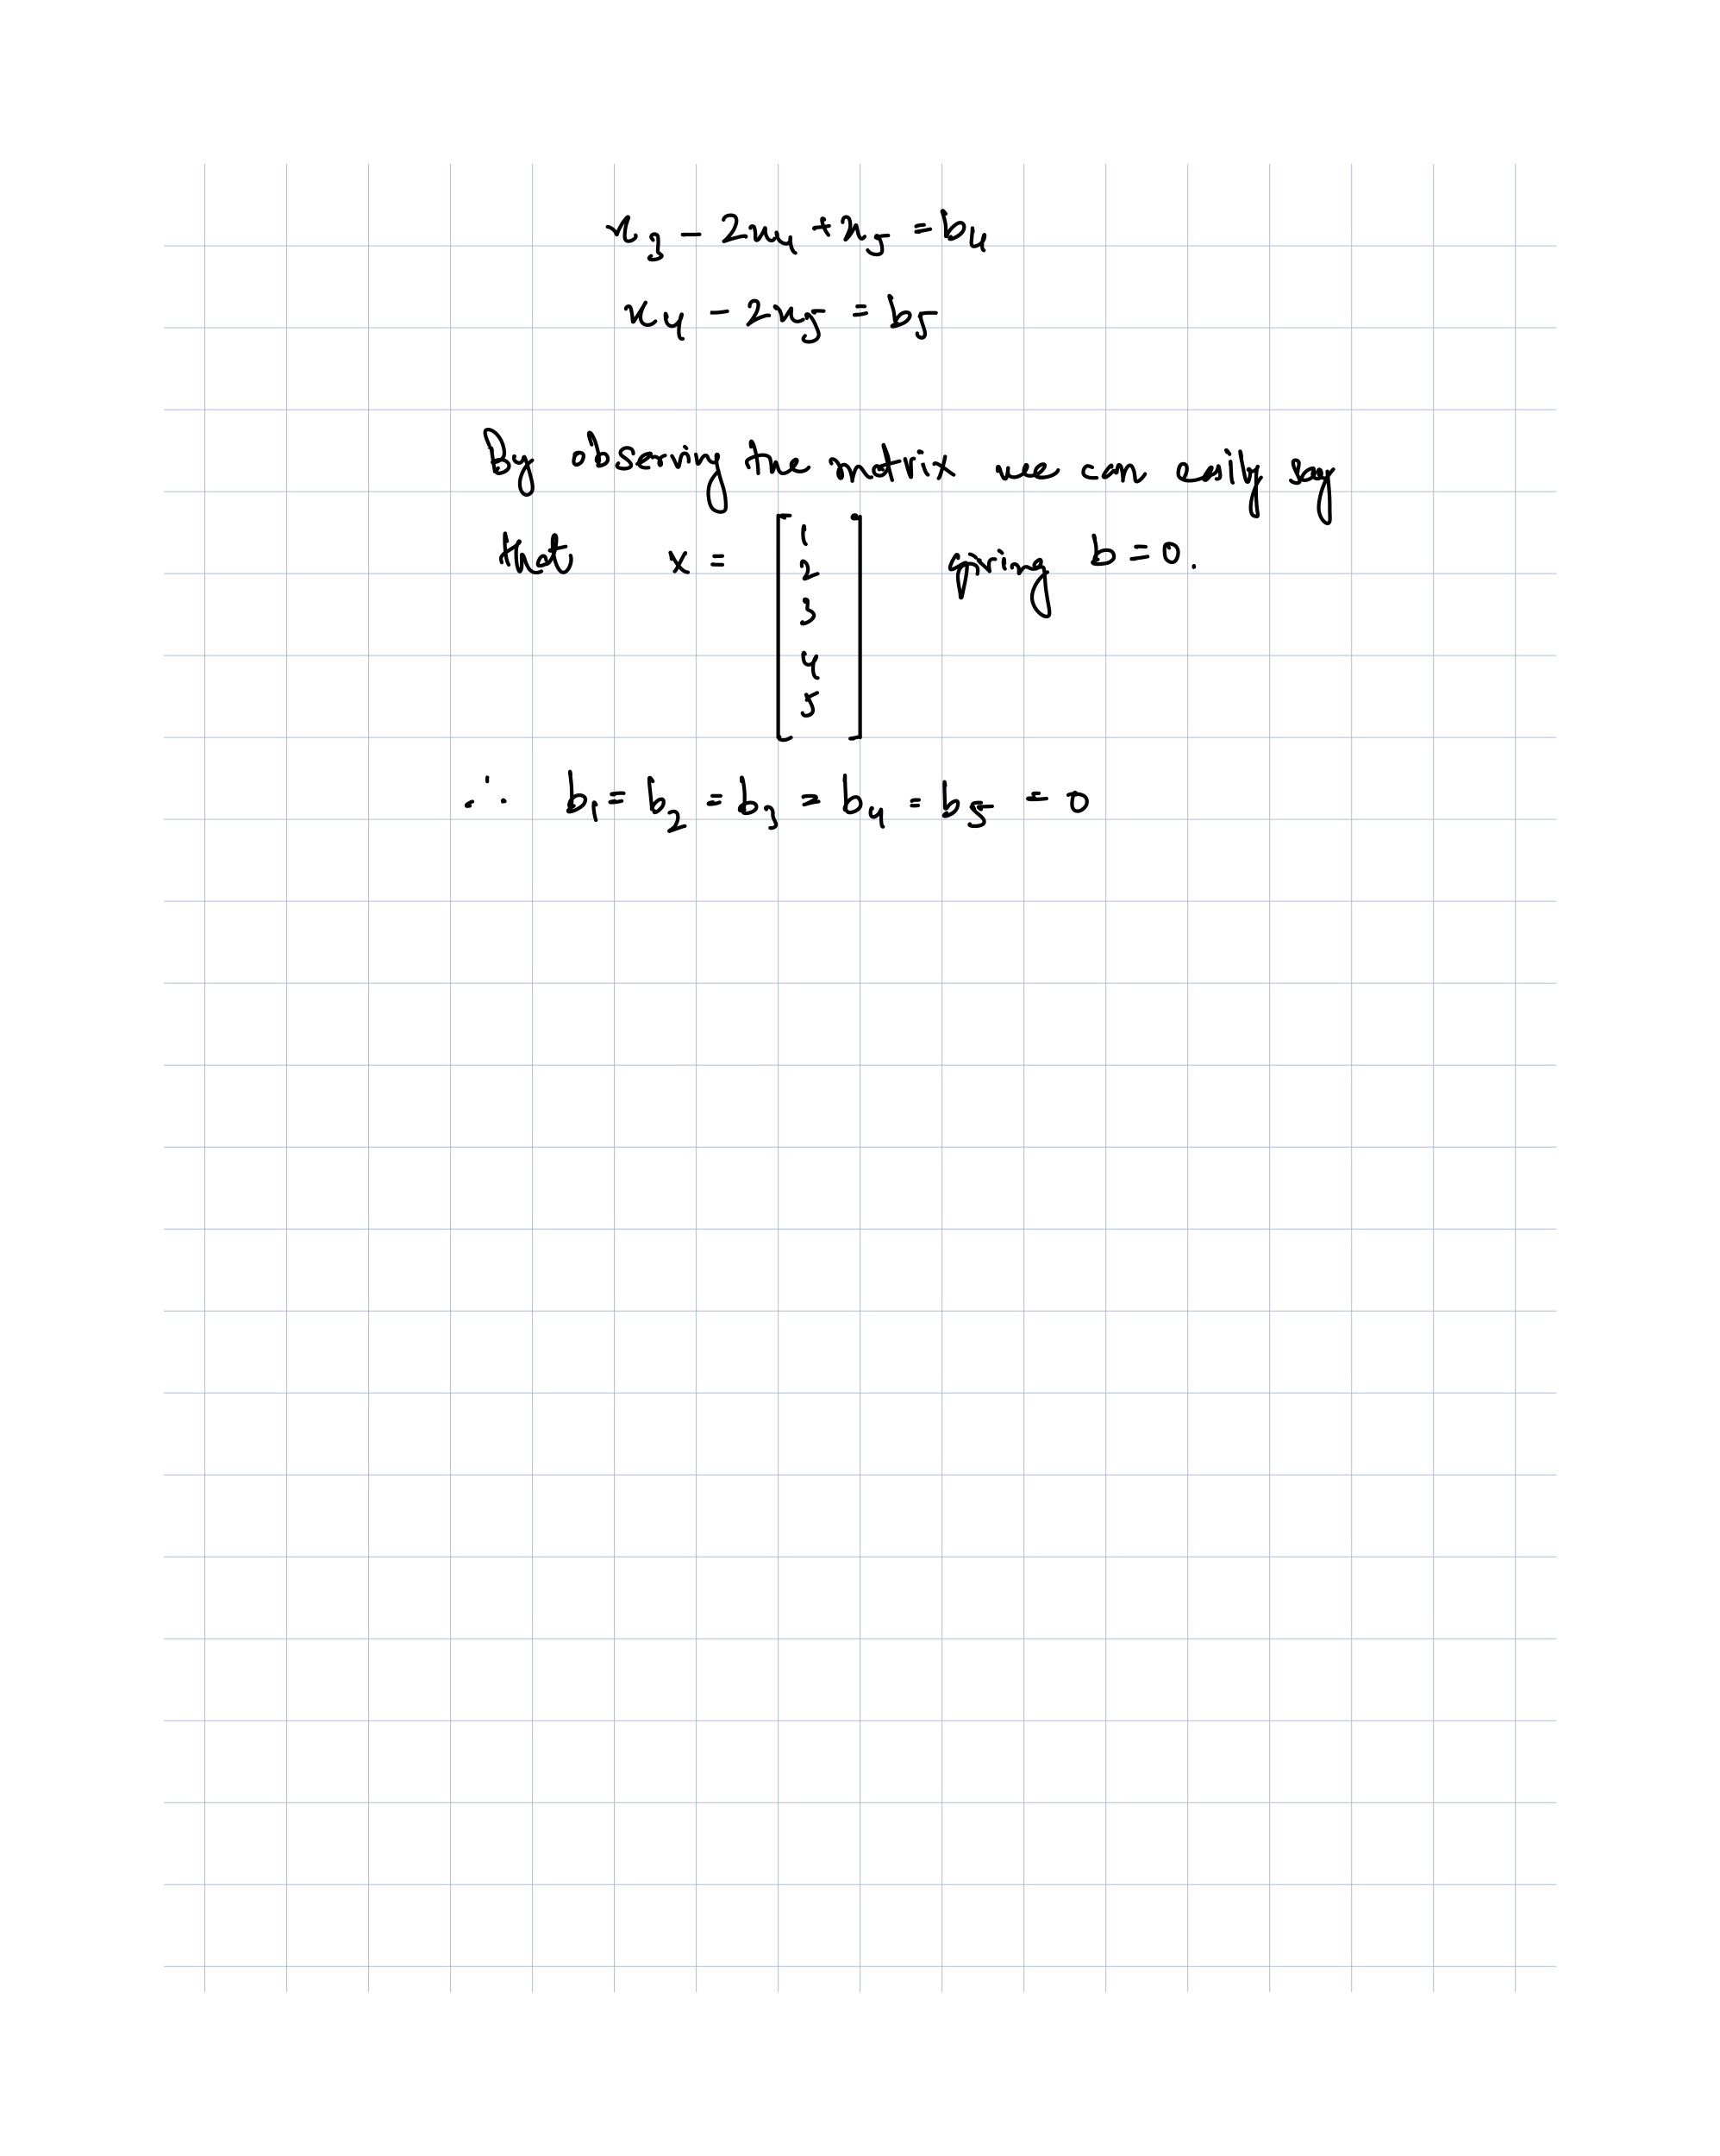 x₃ - 2x₄ + x₅ = b₄
x₄ - 2x₅ = b₅
By observing the matrix we can easily say
that x = [1 2 3 4 5] giving b = 0.
∴ b₁ = b₂ = b₃ = b₄ = b₅ = 0